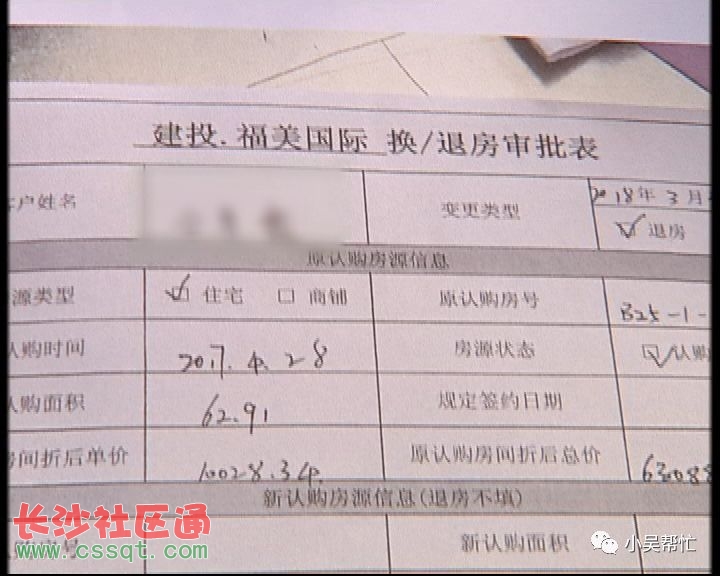 建投.福美国际 换/退房审批表
户姓名 变更类型 2018年3月
退房
原认购房源信息
源类型 住宅 商铺 原认购房号 B25-1-
认购时间 2017.4.28 房源状态 认购
认购面积 62.91 规定签约日期
房间折后单价 10028.34 原认购房间折后总价 63088
新认购房源信息(退房不填)
购房号 新认购面积
长沙社区通
www.cssqt.com
小吴帮忙